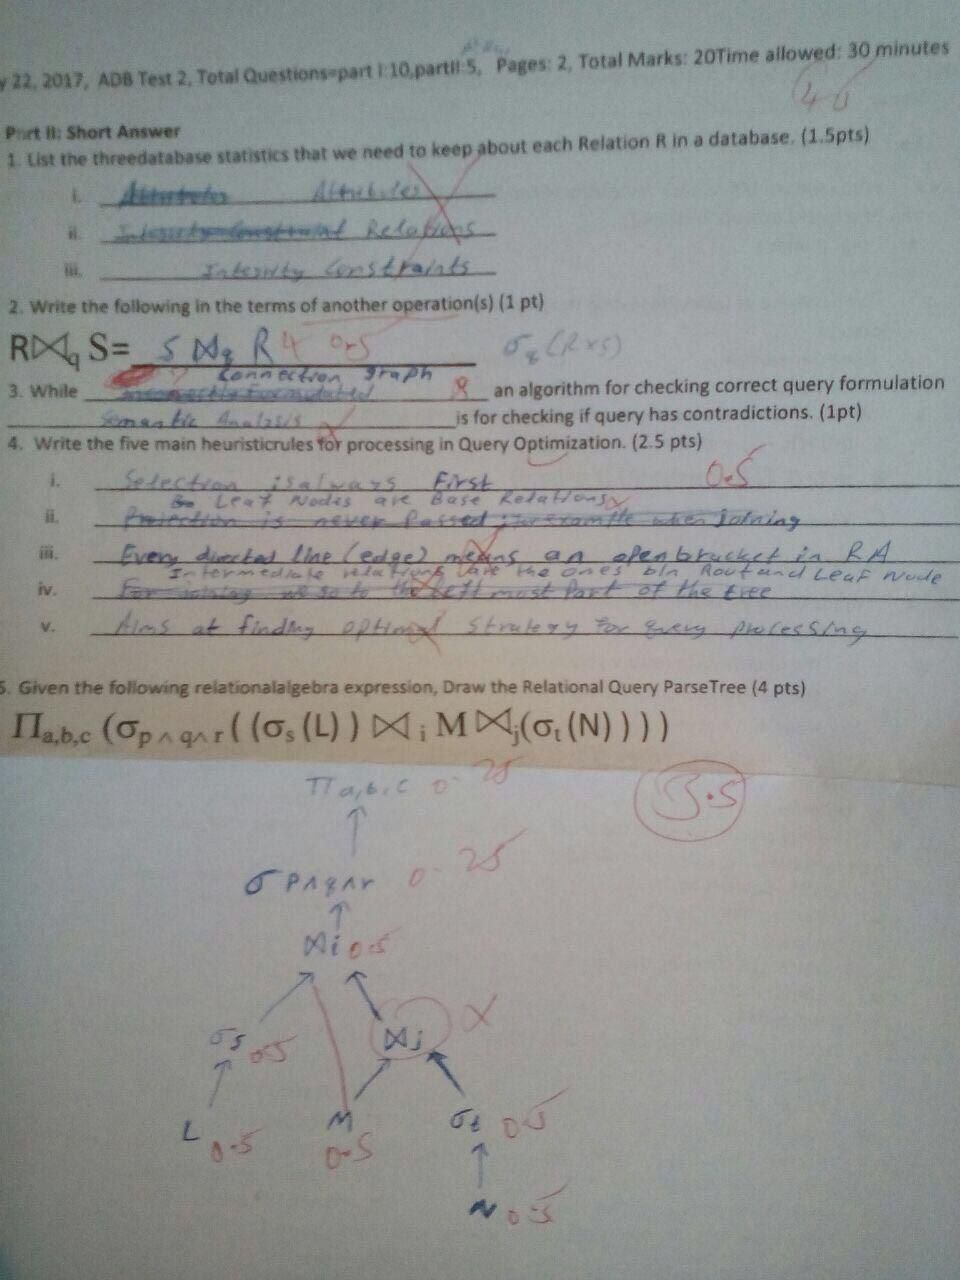 y 22, 2017, ADB Test 2, Total Questions=part I:10,partII:5, Pages: 2, Total Marks: 20Time allowed: 30 minutes
Part II: Short Answer
1. List the threedatabase statistics that we need to keep about each Relation R in a database. (1.5pts)
i. Attributes Attributes
ii. Integrity Constraint Relations
iii. Integrity Constraints
2. Write the following in the terms of another operation(s) (1 pt)
R⋈q S= S ⋈q R 0.5 σq(R×S)
Connection graph
3. While incorrectly Formulated an algorithm for checking correct query formulation
Semantic Analysis is for checking if query has contradictions. (1pt)
4. Write the five main heuristicrules for processing in Query Optimization. (2.5 pts)
i. Selection is always First 0.5
Leaf Nodes are Base Relations
ii. Projection is never Passed for example when joining
iii. Every directed line (edge) means an open bracket in RA
Intermediate relations are the ones b/n Root and Leaf Node
iv. For joining we go to the left most Part of the tree
v. Aims at finding optimal Strategy For query processing
5. Given the following relationalalgebra expression, Draw the Relational Query ParseTree (4 pts)
Πa,b,c (σp ∧ q∧ r ( (σs (L) ) ⋈ i M ⋈j(σt (N) ) ) )
Π a,b,c 0.25
3.5
σ p∧q∧r 0.25
⋈i 0.5
σs 0.5 ⋈j
L 0.5 M 0.5 σt 0.5
N 0.5